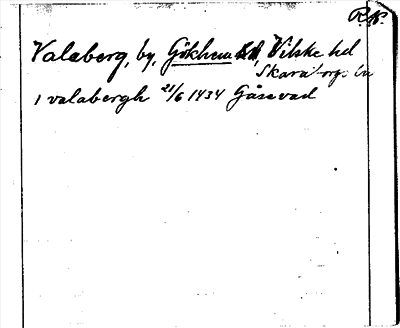 R.N.
Valaberg, by, Gökhem sd, Vilske hd
Skaraborgs län
i valabergh 21/6 1434 Gåsevad